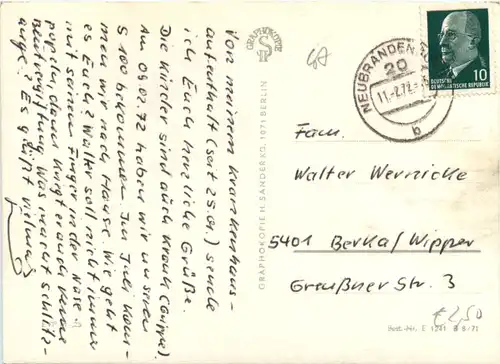 Von meinem Krankenhaus-
aufenthalt (seit 25.01.) sende
ich Euch herzliche Grüße.
Die Kinder sind auch krank (Grippe).
Am 09.02.72 haben wir unseren
S 100 bekommen. Im Juli kom-
men wir nach Hause. Wie geht
es Euch? Walter soll nicht immer
mit seinen Finger in der Nase
popeln, dann kriegt er auch keine
Blutvergiftung. Was macht schlitz-
auge? Es grüßt vielmals
GRAPHOKOPIE
GRAPHOKOPIE H. SANDER KG, 1071 BERLIN
NEUBRANDENBURG
20
11.-2.72.-
b
DEUTSCHE
DEMOKRATISCHE REPUBLIK
10
Fam.
Walter Wernicke
5401 Berka/Wipper
Greußner Str. 3
€2,50
Best.-Nr. E 1241 B 8/71